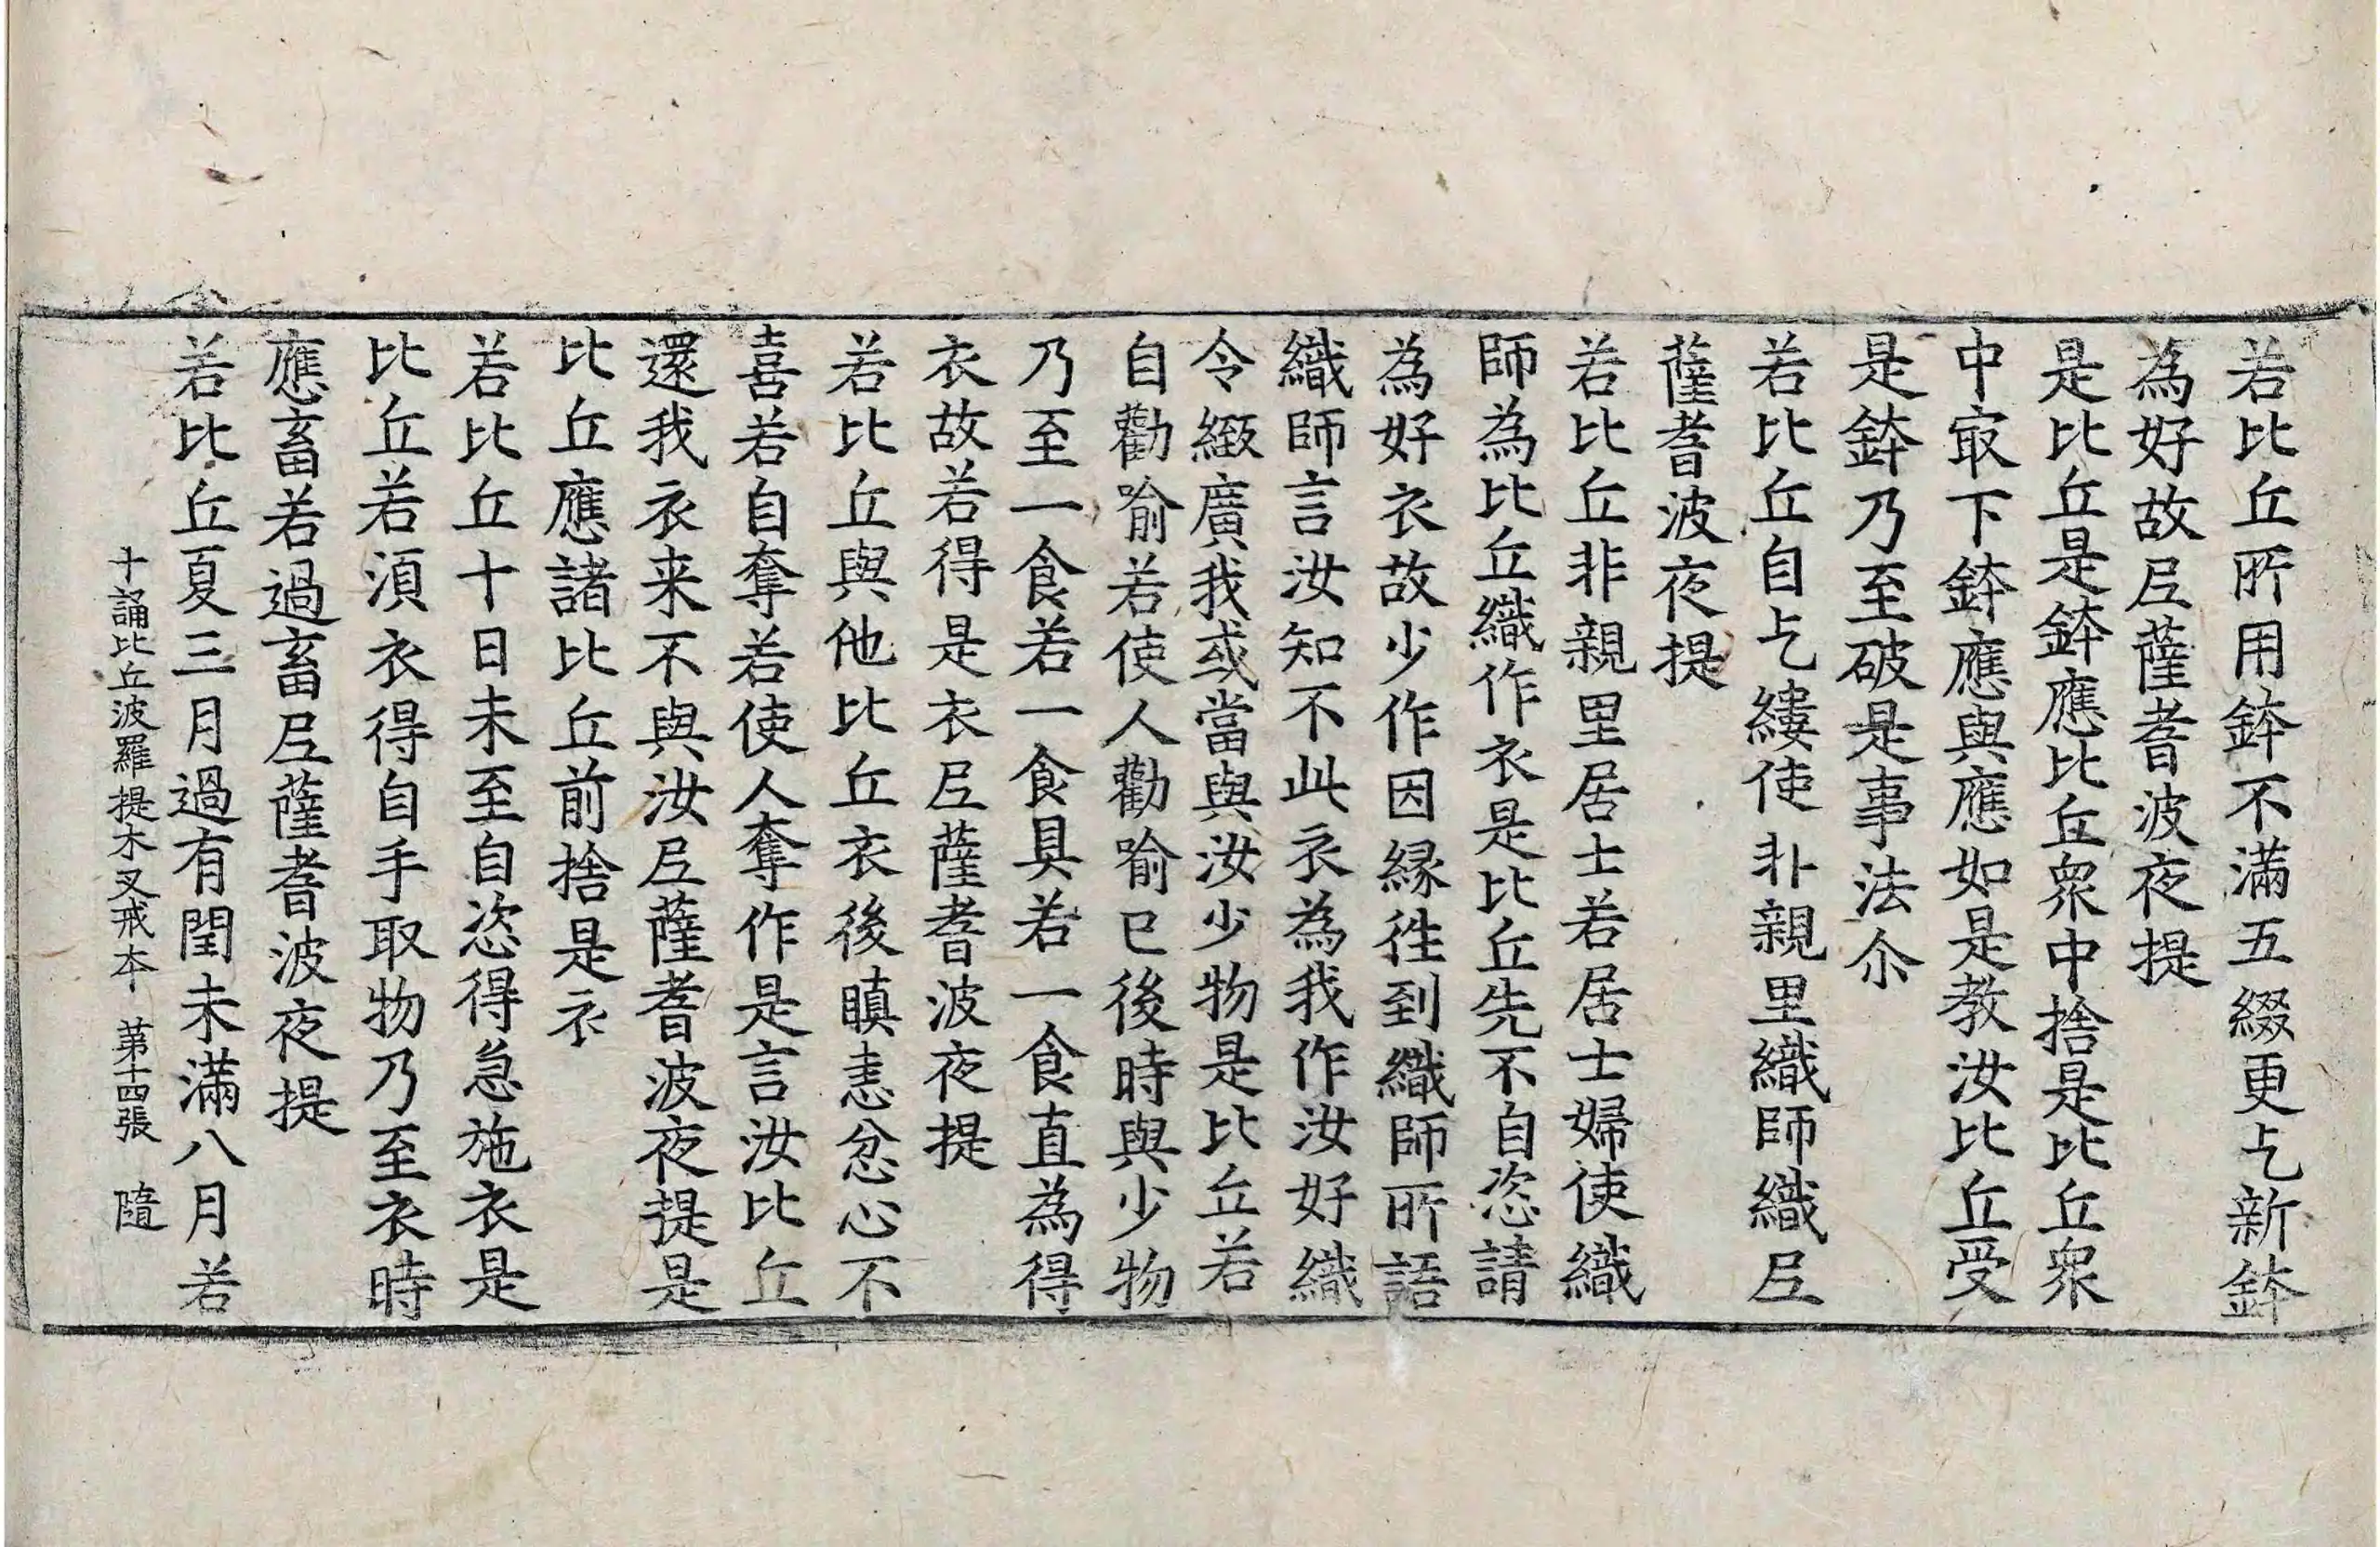 若比丘所用鉢不滿五綴更乞新鉢
為好故尼薩耆波夜提
是比丘是鉢應比丘衆中捨是比丘衆
中㝡下鉢應與應如是教汝比丘受
是鉢乃至破是事法尒
若比丘自乞縷使非親里織師織尼
薩耆波夜提
若比丘非親里居士若居士婦使織
師為比丘織作衣是比丘先不自恣請
為好衣故少作因緣徃到織師所語
織師言汝知不此衣為我作汝好織
令緻廣我或當與汝少物是比丘若
自勸喻若使人勸喻已後時與少物
乃至一食若一食具若一食直為得
衣故若得是衣尼薩耆波夜提
若比丘與他比丘衣後瞋恚忿心不
喜若自奪若使人奪作是言汝比丘
還我衣来不與汝尼薩耆波夜提是
比丘應諸比丘前捨是衣
若比丘十日未至自恣得急施衣是
比丘若湏衣得自手取物乃至衣時
應畜若過畜尼薩耆波夜提
若比丘夏三月過有閏未滿八月若
十誦比丘波羅提木叉戒本 第十四張 隨